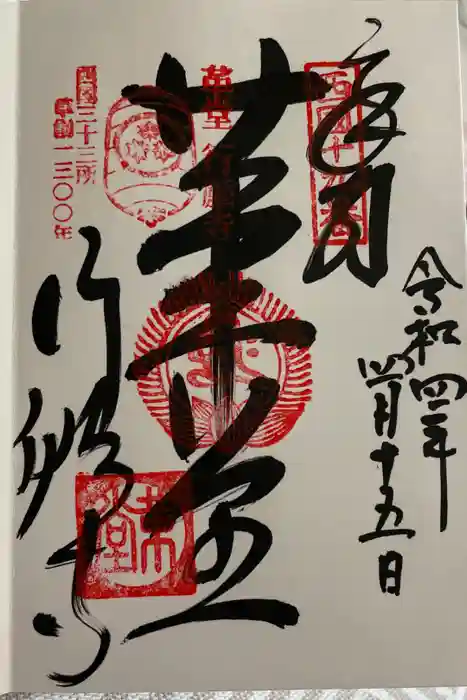 奉拝
令和四年
四月十五日
西国十九番
革堂
革堂 行願寺
西国三十三所
草創一三〇〇年
行願寺
革堂